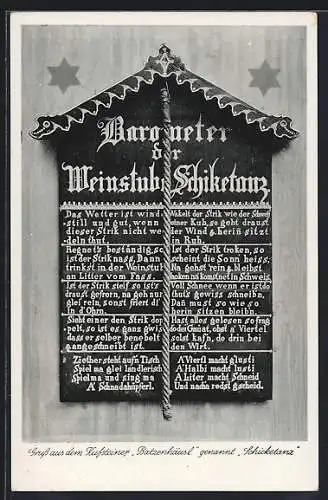 Barometer
der
Weinstube Schiketanz
Das Wetter ist wind-
still und gut, wenn
dieser Strik nicht we-
deln thut.
Regnets beständig, so
ist der Strik nass, Dann
trinkst in der Weinstub
an Litler vom Fass.
Ist der Strik steif so ists
draust gefrorn, na geh nur
glei rein, sonst friert di
in d'Ohrn.
Sieht einer den Strik dop-
pelt, so ist es ganz gwis
dass er selber benebelt
angeschneibt ist.
Ziether steht aufn Tisch
Spiel ma glei landlerisch
Spielma und sing ma
A' Schnadahüpferl.
Wakelt der Strik wie der Schweif
einer Kuh, so geht draust
der Wind & herin sitzt
in Ruh.
Ist der Strik troken, so
scheint die Sonn heiss;
Na gehst rein & bleibst
hoken na komst net in Schweis.
Voll Schnee wenn er ist do
thuts gewiss schneibn,
Dan must so wie so
herin sitzen bleibn.
Hast alles gelesen so frag
so der Gmüat, obst a' Viertel
solst kafn, do drin bei
den Wirt.
A' Viertl macht glusti
A' Halbi macht lusti
A Liter macht Schneid
Und nacha rodst gscheid.
Gruß aus dem Kufsteiner „Batzenhäusl" genannt „Schicketanz"